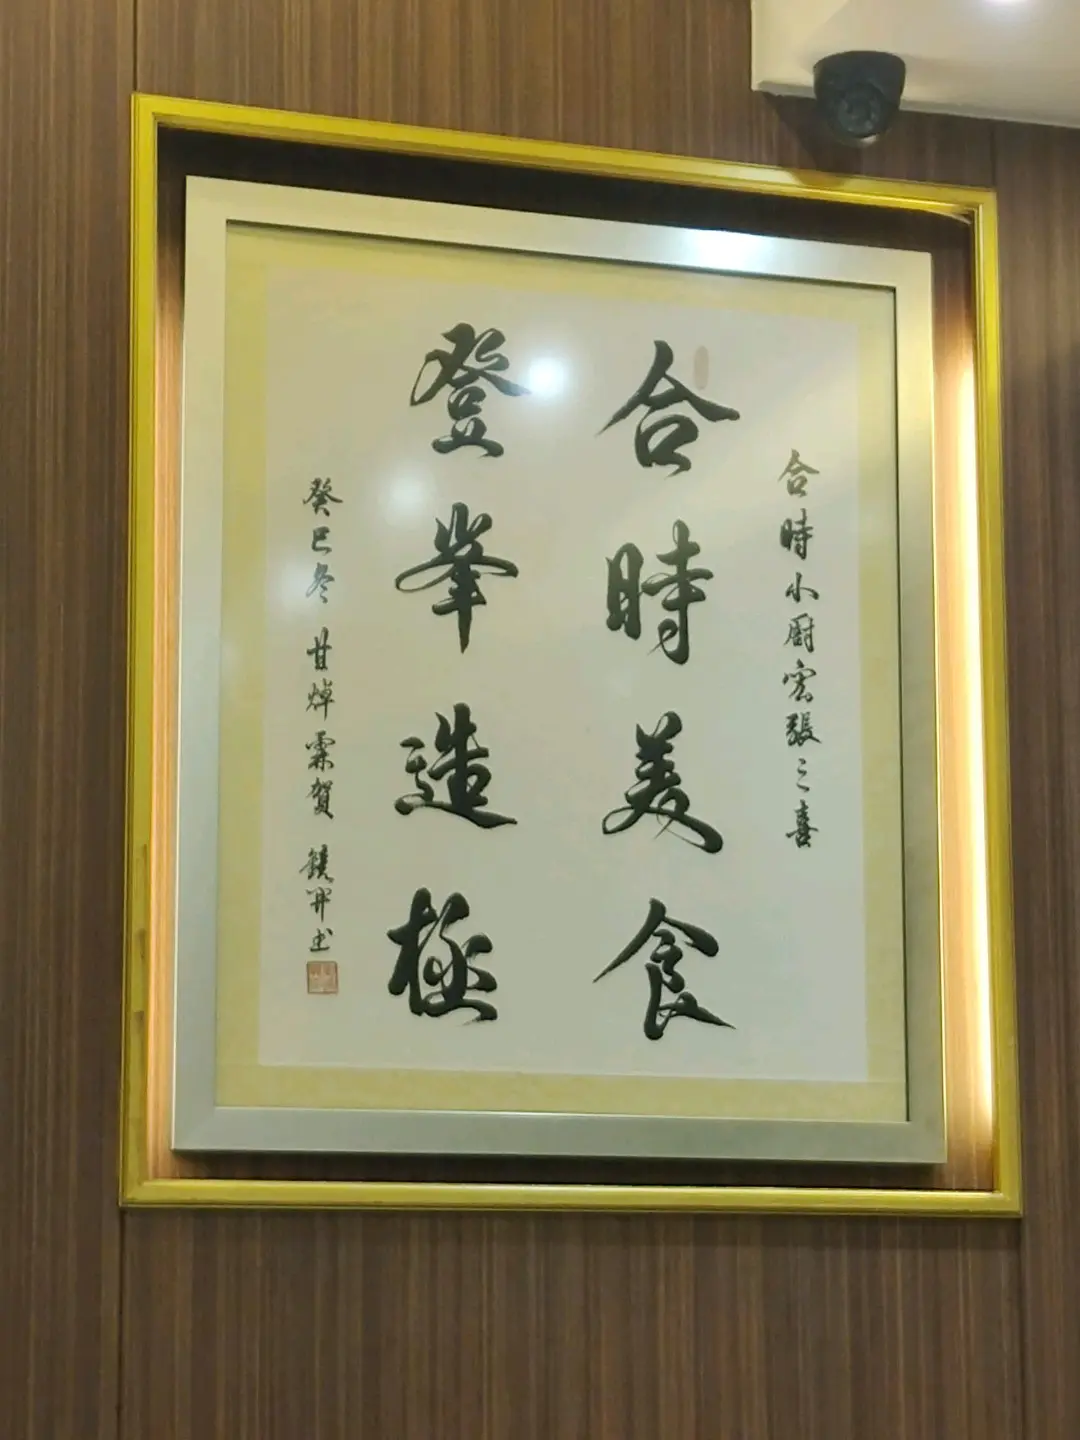 合時小厨宏張之喜
合時美食
登峯造極
癸巳冬 甘焯霖賀 鏡開书